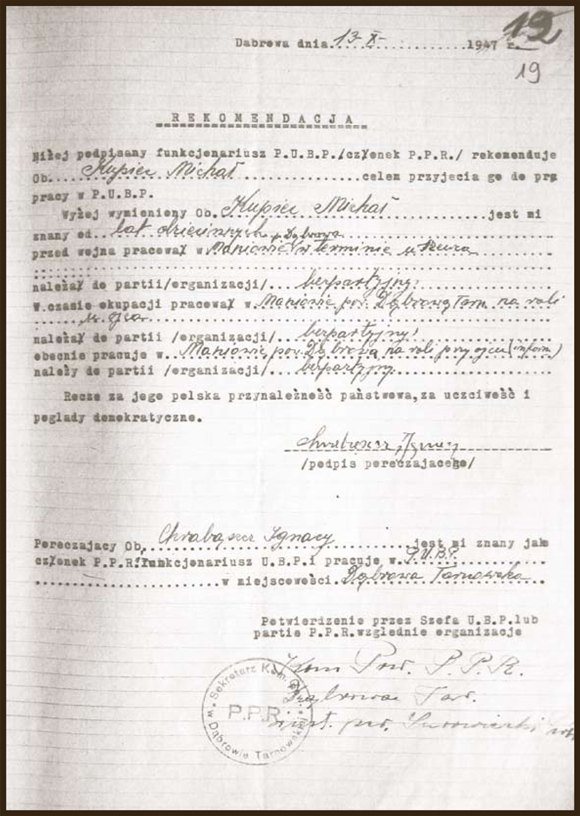 19
Dabrowa dnia 13-X- 1947 r.
19
REKOMENDACJA
Niżej podpisany funkcjonariusz P.U.B.P./członek P.P.R./ rekomenduje
Ob. Kupiec Michał celem przyjecia go do pra
pracy w P.U.B.P.
Wyżej wymieniony Ob. Kupiec Michał jest mi
znany od lat dziecinnych p. Dąbrowa
przed wojna pracował w Maniowie w terminie u
należał do partii/organizacji/ bezpartyjny.
W czasie okupacji pracował w Maniowie pow. Dąbrowa Tarn. na roli
u ojca
należał do partii/organizacji/ bezpartyjny
obecnie pracuje w Maniowie pow. Dąbrowa na roli przy ojcu (inform)
należy do partii /organizacji/ bezpartyjny.
Recze za jego polska przynależność państwowa, za uczciwość i
poglady demokratyczne.
Chrabąszcz Ignacy
/podpis pereczajacego/
Pereczajacy Ob. Chrabąszcz Ignacy jest mi znany jako
członek P.P.R. funkcjonariusz U.B.P. i pracuje w P.U.B.P.
w miejscowości Dąbrowa Tarnowska
Potwierdzenie przez Szefa U.B.P. lub
partie P.P.R. względnie organizacje
Kom Pow. P.P.R.
Dąbrowa Tar.
Sekretarz Kom.
P.P.R.
w Dąbrowie Tarnowskiej